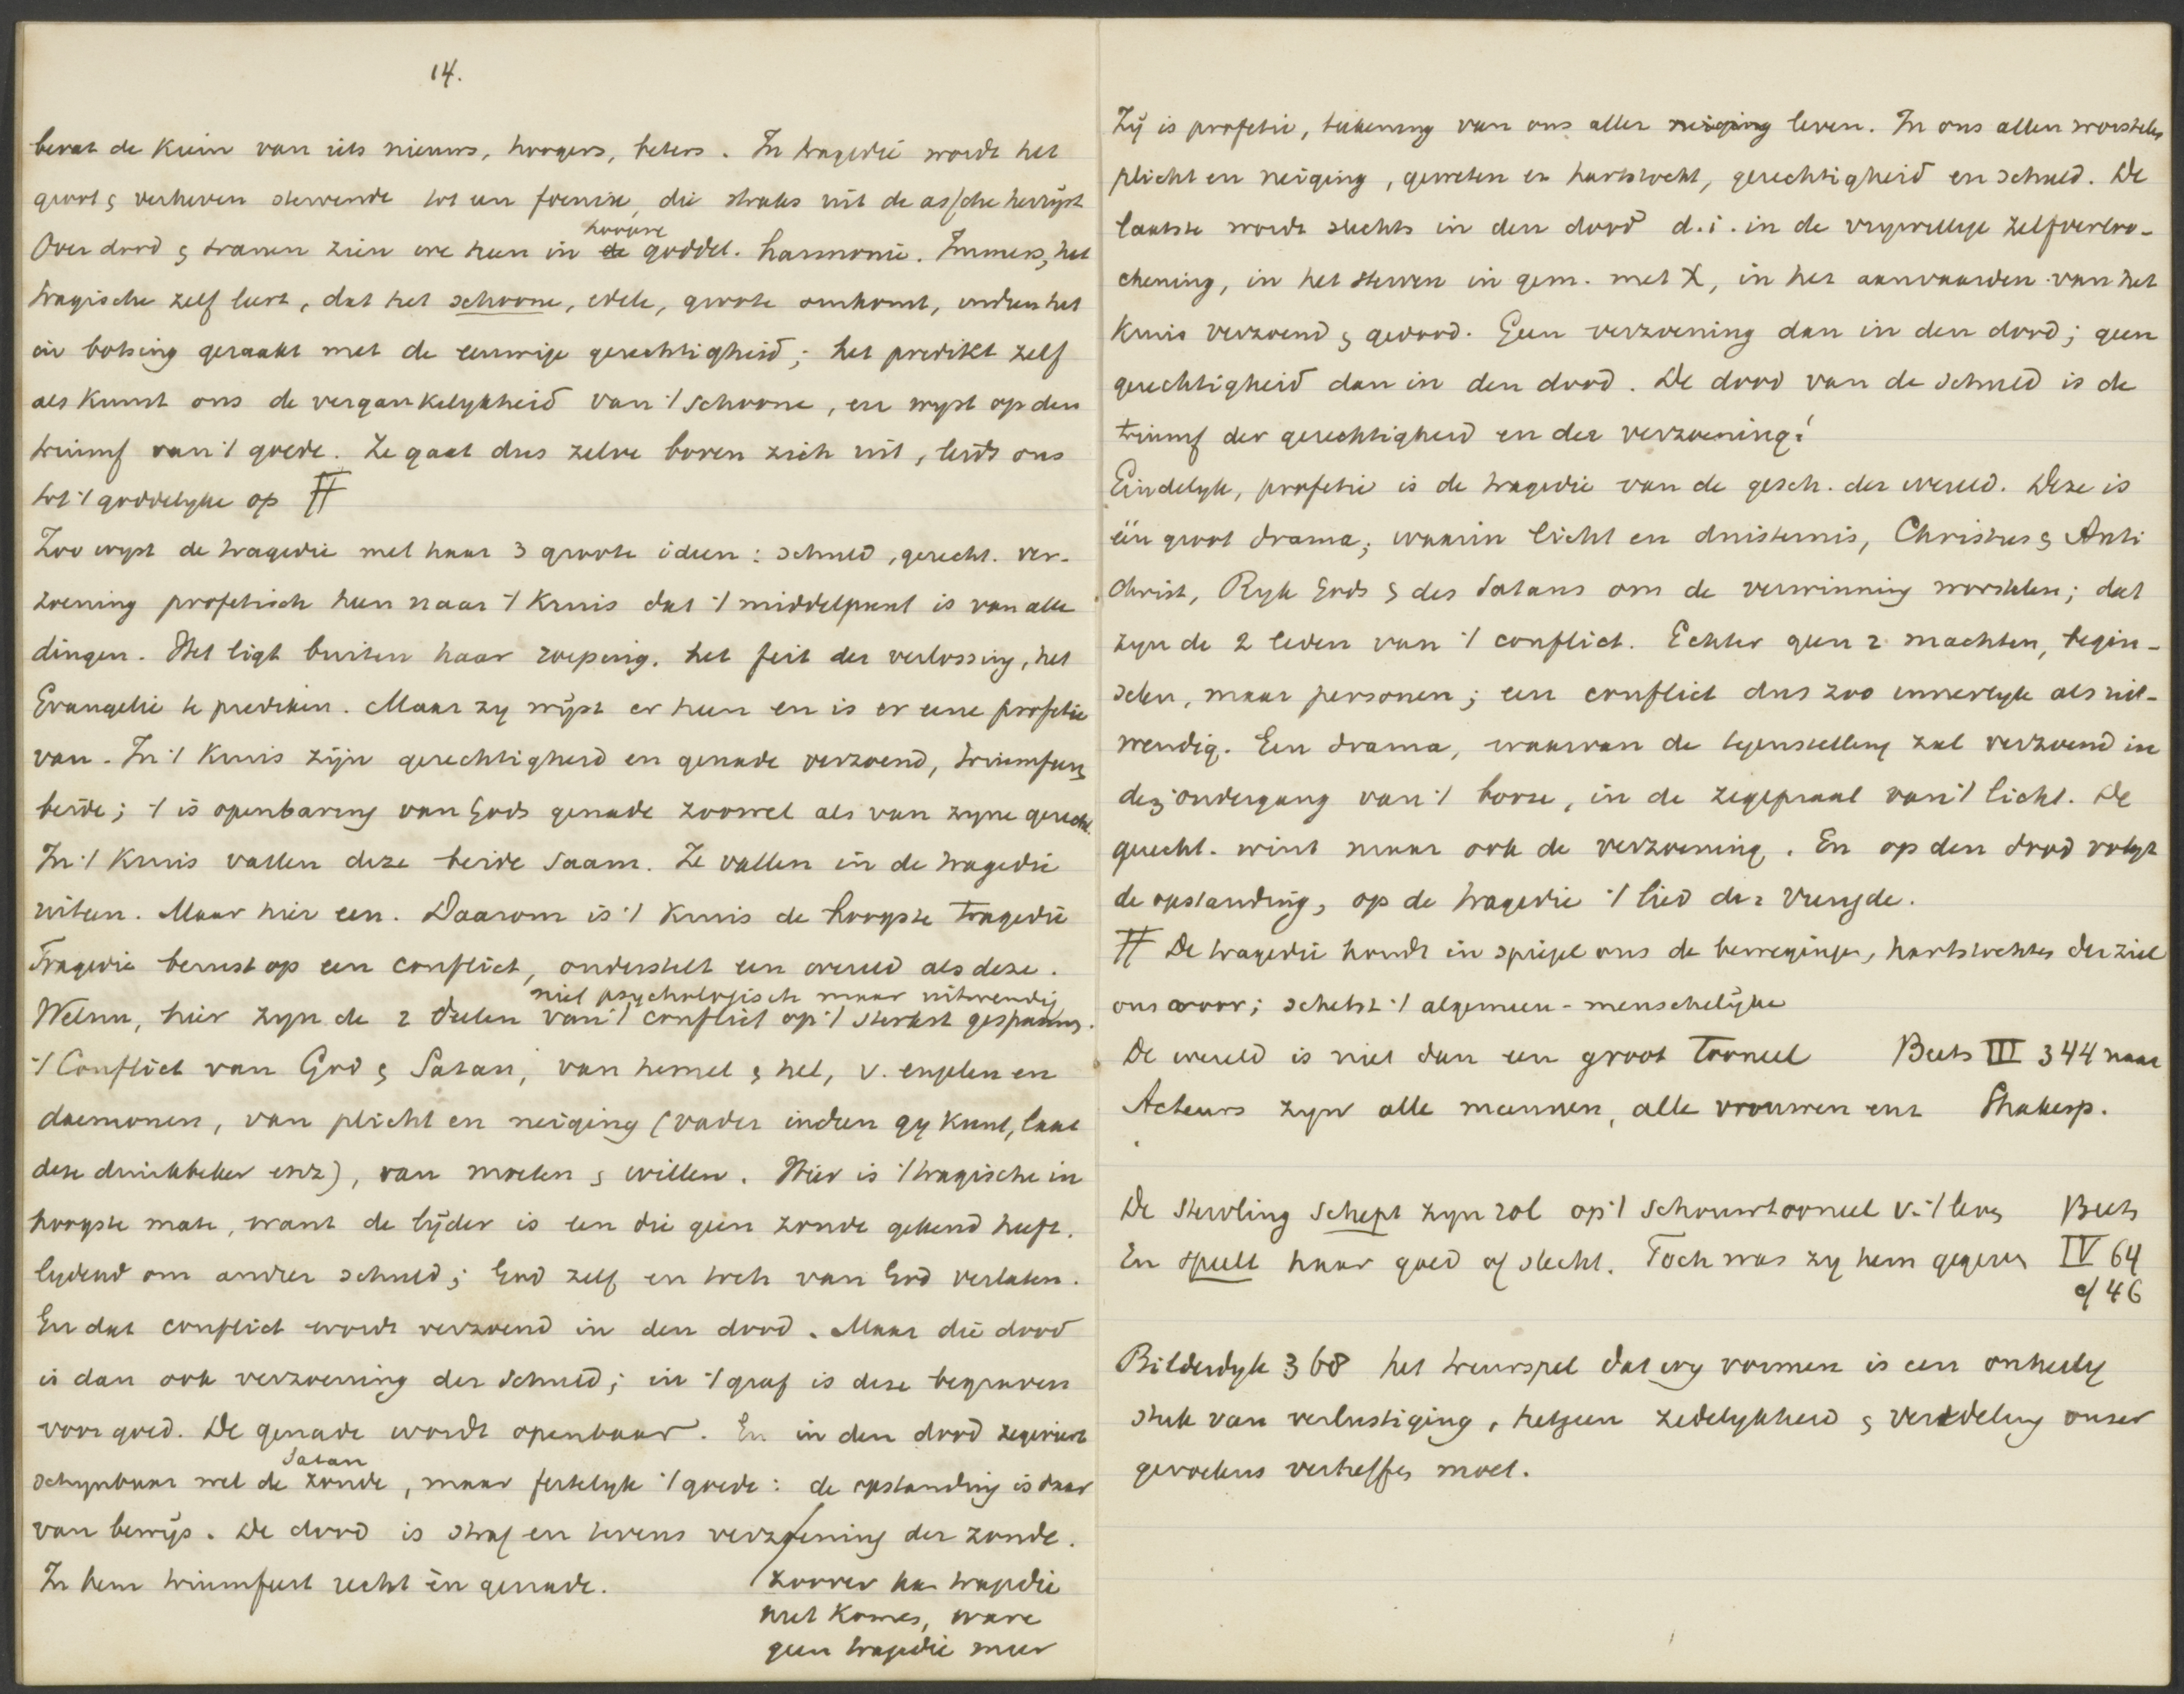 14.
bevat de kiem van iets nieuws, hoogers, beters. In tragedie wordt het
groot & verheven stervende tot een foenix, die straks uit de assche herrijst
Over dood & tranen zien we heen in de hoogere goddel. harmonie. Immers, het
tragische zelf leert, dat het schoone, edele, groote omkomt, indien het
in botsing geraakt met de eeuwige gerechtigheid; het predikt zelf
als kunst ons de vergankelykheid van 't schoone, en wyst op den
triumf van 't goede. Ze gaat dus zelve boven zich uit, leidt ons
tot 't goddelyke op #
Zoo wyst de tragedie met haar 3 groote ideen: schuld, gerecht. ver-
zoening profetisch heen naar 't Kruis dat 't middelpunt is van alle
dingen. Het ligt buiten haar roeping. het feit der verlossing, het
Evangelie te prediken. Maar zy wijst er heen en is er eene profetie
van. In 't Kruis zijn gerechtigheid en genade verzoend, triumfeeren
beide; 't is openbaring van Gods genade zoowel als van zyne gerecht.
In 't Kruis vallen deze beide saam. Ze vallen in de tragedie
uiteen. Maar hier een. Daarom is 't Kruis de hoogste tragedie
Tragedie berust op een conflict, onderstelt een wereld als deze.
niet psychologisch maar uitwendig
Welnu, hier zyn de 2 deelen van 't conflict op 't sterkst gespannen.
't Conflict van God & Satan, van hemel & hel, v. engelen en
daemonen, van plicht en neiging (vader indien gy kunt, laat
deze drinkbeker enz), van moeten & willen. Hier is 't tragische in
hoogste mate, want de lijder is een die geen zonde gekend heeft.
lydend om ander schuld; God zelf en toch van God verlaten.
En dat conflict wordt verzoend in den dood. Maar die dood
is dan ook verzoening der schuld; in 't graf is deze begraven
voor goed. De genade wordt openbaar. En in den dood zegeviert
schynbaar wel de zonde Satan, maar feitelyk 't goede: de opstanding is daar
van bewijs. De dood is straf en tevens verzoening der zonde.
In hem triumfeert recht én genade.
zoover kan tragedie
niet komen, ware
geen tragedie meer
Zij is profetie, teekening van ons aller neiging leven. In ons allen worstelen
plicht en neiging, geweten en hartstocht, gerechtigheid en schuld. De
laatste wordt slechts in den dood d.i. in de vrywillige zelfverloo-
chening, in het sterven in gem. met X, in het aanvaarden van het
Kruis verzoend & gedood. Geen verzoening dan in den dood; geen
gerechtigheid dan in den dood. De dood van de schuld is de
triumf der gerechtigheid en der verzoening!
Eindelyk, profetie is de tragedie van de gesch. der wereld. Deze is
één groot drama; waarin licht en duisternis, Christus & Anti
christ, Ryk Gods & des Satans om de verwinning worstelen; dat
zyn de 2 leden van 't conflict. Echter geen 2 machten, begin-
selen, maar personen; een conflict dus zoo innerlyk als uit-
wendig. Een drama, waarvan de tegenstelling zal verzoend in
den ondergang van 't booze, in de zegepraal van 't licht. De
gerecht. wint maar ook de verzoening. En op den dood volgt
de opstanding, op de tragedie 't lied der vreugde.
# De tragedie houdt in spiegel ons de bewegingen, hartstochten der ziel
ons voor; schetst 't algemeen-menschelijke
De wereld is niet dan een groot Tooneel Beets III 344 naar
Acteurs zyn alle mannen, alle vrouwen enz Shakesp.
De sterveling schept zyn rol op 't schouwtooneel v. 't leven Beets
En speelt haar goed of slecht. Toch was zy hem gegeven IV 64
cf 46
Bilderdyk 368 het treurspel dat wy vormen is een onheilig
stuk van verlustiging, hetgeen zedelykheid & veredeling onzer
gevoelens verheffen moet.